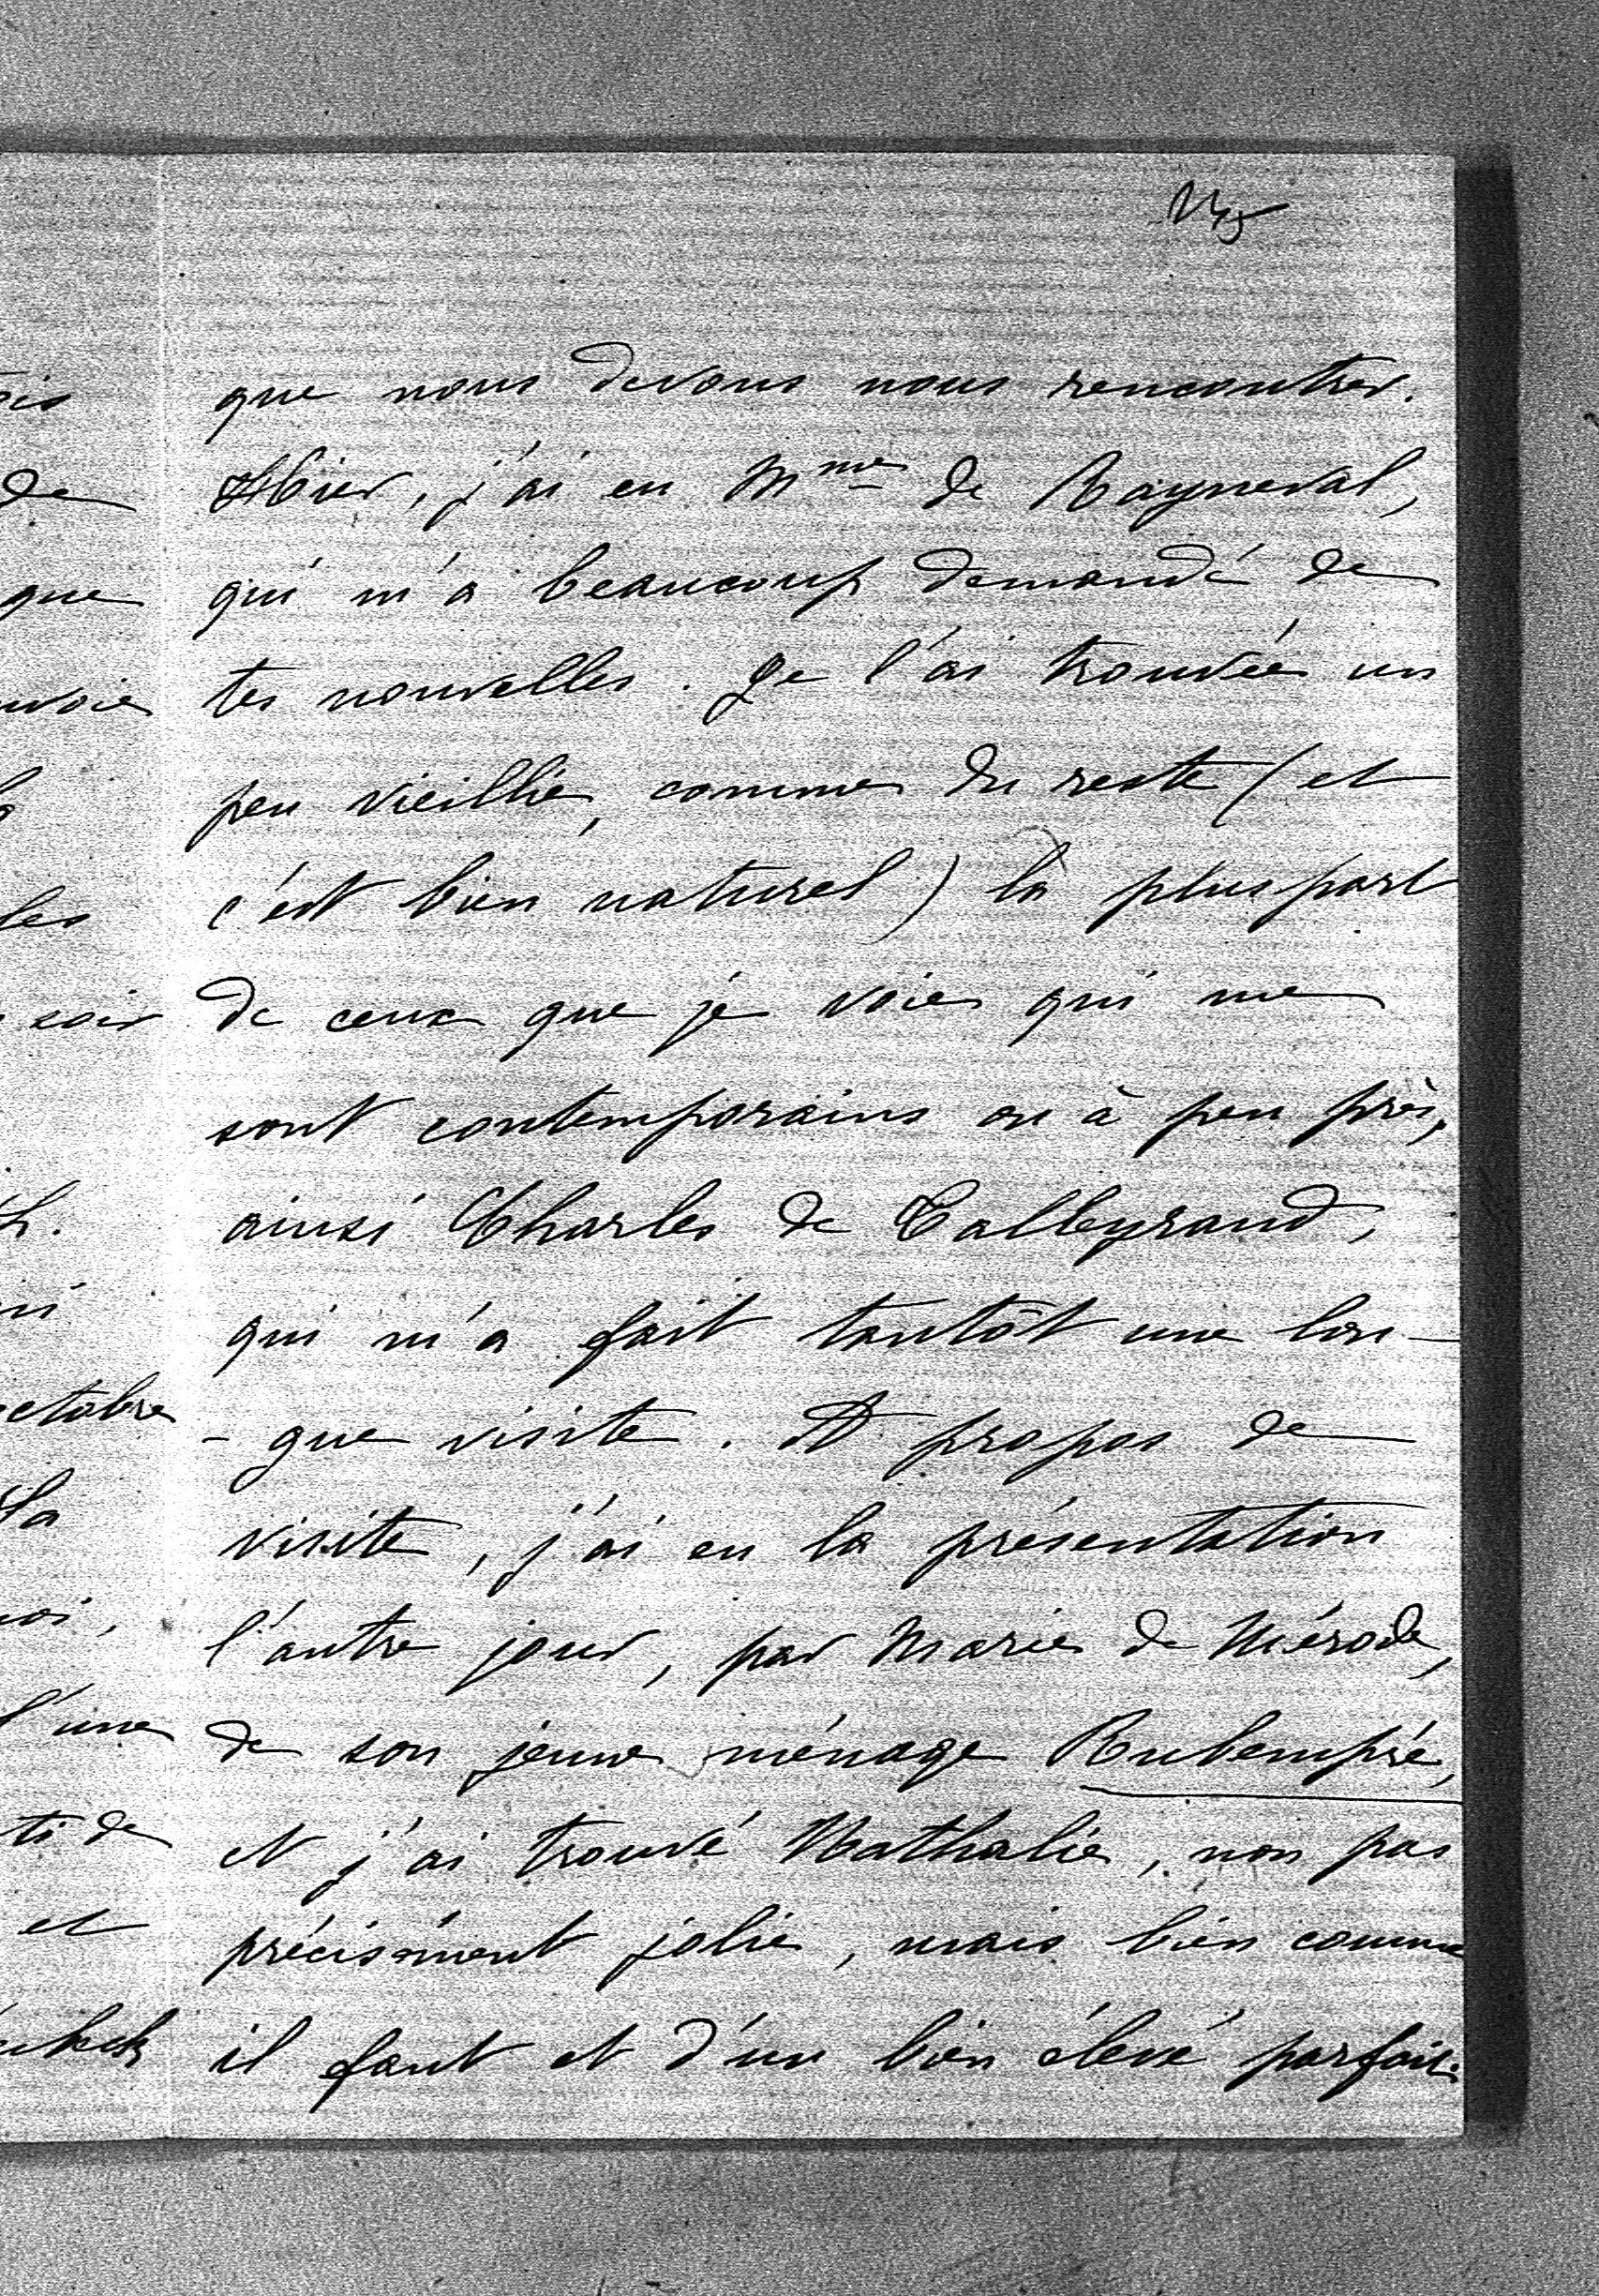 que nous devons nous rencontrer.
Hier, j'ai eu Mme de Rayneval,
qui m'a beaucoup demandé de
tes nouvelles. Je l'ai trouvée un
peu vieillie, comme du reste (et
c'est bien naturel) la plus part
de ceux que je vois qui me
sont contemporains ou à peu près,
ainsi Charles de Talleyrand,
qui m'a fait tantôt une lon-
-gue visite. A propos de
visite, j'ai eu la présentation
l'autre jour, par Marie de Mérode,
de son jeune ménage Rubempré,
et j'ai trouvé Nathalie, non pas
précisément jolie, mais bien comme
il faut et d'un bien élevé parfait.
de
que
les
soir
octobre
la
l'une
et